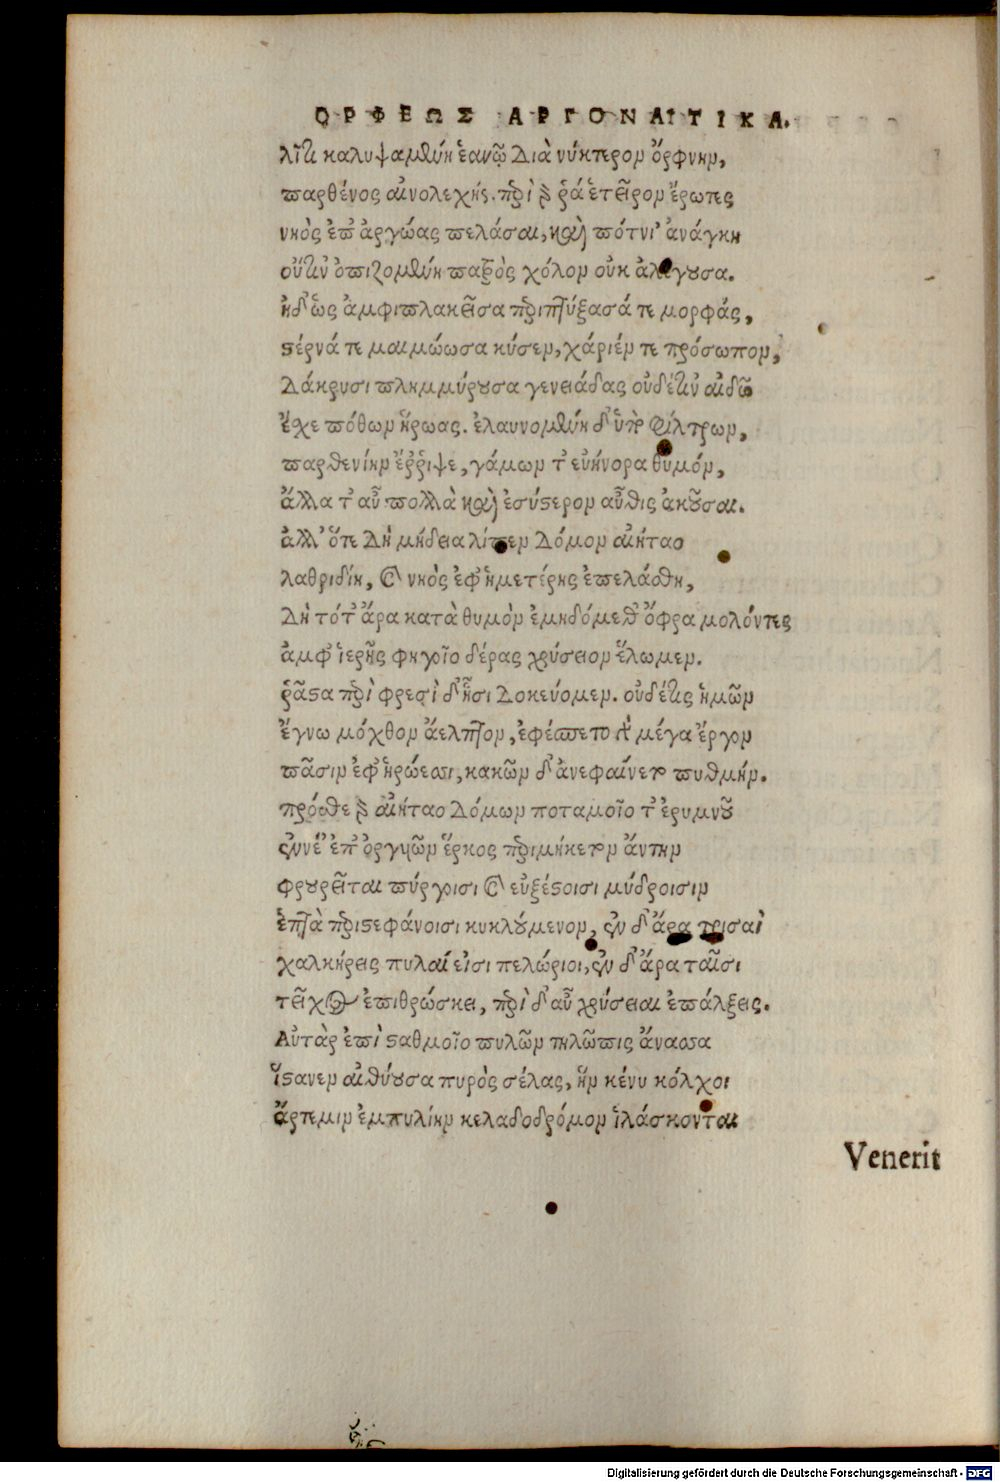 ΟΡΦΕΩΣ ΑΡΓΟΝΑΥΤΙΚΑ.
λῖτι καλυψαμένη ἑανῷ διὰ νύκτερον ὄρφνην,
παρθένος αἰνολεχής. περὶ γὰρ ῥά ἑ τεῖρον ἔρωτες
νηὸς ἐπ' ἀργώας πελάσαι, καὶ πότνι' ἀνάγκη
οὔτιν' ὀπιζομένη πατρὸς χόλον οὐκ ἀλέγουσα.
ἡδέως ἀμφιπλακεῖσα περιπτύξασά τε μορφάς,
στέρνά τε μαιμώωσα κύσεν, χάριέν τε πρόσωπον,
δάκρυσι πλημμύρουσα γενειάδας οὐδέ τιν' αἰδῶ
ἔχε πόθων ἥρωας. ἐλαυνομένη δ' ὑπὸ φίλτρων,
παρθενίην ἔῤῥιψε, γάμων τ' εὐήνορα θυμόν,
ἄλλα τ' αὖ πολλὰ καὶ ἐσύστερον αὖθις ἀκοῦσαι.
ἀλλ' ὅτε δὴ μήδεια λίπεν δόμον αἰήταο
λαθριδίη, καὶ νηὸς ἐφ' ἡμετέρης ἐπελάσθη,
δὴ τότ' ἄρα κατὰ θυμὸν ἐμηδόμεθ' ὄφρα μολόντες
ἀμφ' ἱερῆς φηγοῖο δέρας χρύσειον ἕλωμεν.
ῥᾷστα περὶ φρεσὶ δ' ᾗσι δοκεύομεν. οὐδέ τις ἡμῶν
ἔγνω μόχθον ἄελπτον, ἐφέσπετο γὰρ μέγα ἔργον
πᾶσιν ἐφ' ἡρώεσσι, κακῶν δ' ἀνεφαίνετο πυθμήν.
πρόσθε γὰρ αἰήταο δόμων ποταμοῖο τ' ἐρυμνοῦ
ἐννέ' ἐπ' ὀργυιῶν ἕρκος περιμήκετον ἄντην
φρουρεῖται πύργοισι καὶ εὐξέστοισι μύδροισιν
ἑπτὰ περιστεφάνοισι κυκλούμενον, ἐν δ' ἄρα τρισσαὶ
χαλκήρεις πυλαί εἰσι πελώριοι, ἐν δ' ἄρα ταῖσι
τεῖχος ἐπιθρώσκει, περὶ δ' αὖ χρύσειαι ἐπάλξεις.
Αὐτὰρ ἐπὶ σταθμοῖο πυλῶν τηλῶπις ἄνασσα
ἵστανεν αἰθύουσα πυρὸς σέλας, ἥν κένυ κόλχοι
ἄρτεμιν ἐμπυλίην κελαδοδρόμον ἱλάσκονται
Venerit
Digitalisierung gefördert durch die Deutsche Forschungsgemeinschaft - DFG